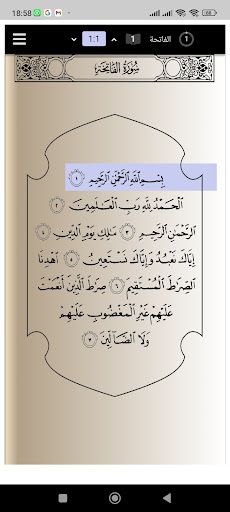 18:58 68
1:1 1 الفاتحة 1
سُورَةُ الْفَاتِحَةِ
بِسْمِ ٱللَّهِ ٱلرَّحْمَٰنِ ٱلرَّحِيمِ ١
ٱلْحَمْدُ لِلَّهِ رَبِّ ٱلْعَٰلَمِينَ ٢
ٱلرَّحْمَٰنِ ٱلرَّحِيمِ ٣ مَٰلِكِ يَوْمِ ٱلدِّينِ ٤
إِيَّاكَ نَعْبُدُ وَإِيَّاكَ نَسْتَعِينُ ٥ ٱهْدِنَا
ٱلصِّرَٰطَ ٱلْمُسْتَقِيمَ ٦ صِرَٰطَ ٱلَّذِينَ أَنْعَمْتَ
عَلَيْهِمْ غَيْرِ ٱلْمَغْضُوبِ عَلَيْهِمْ
وَلَا ٱلضَّآلِّينَ ٧